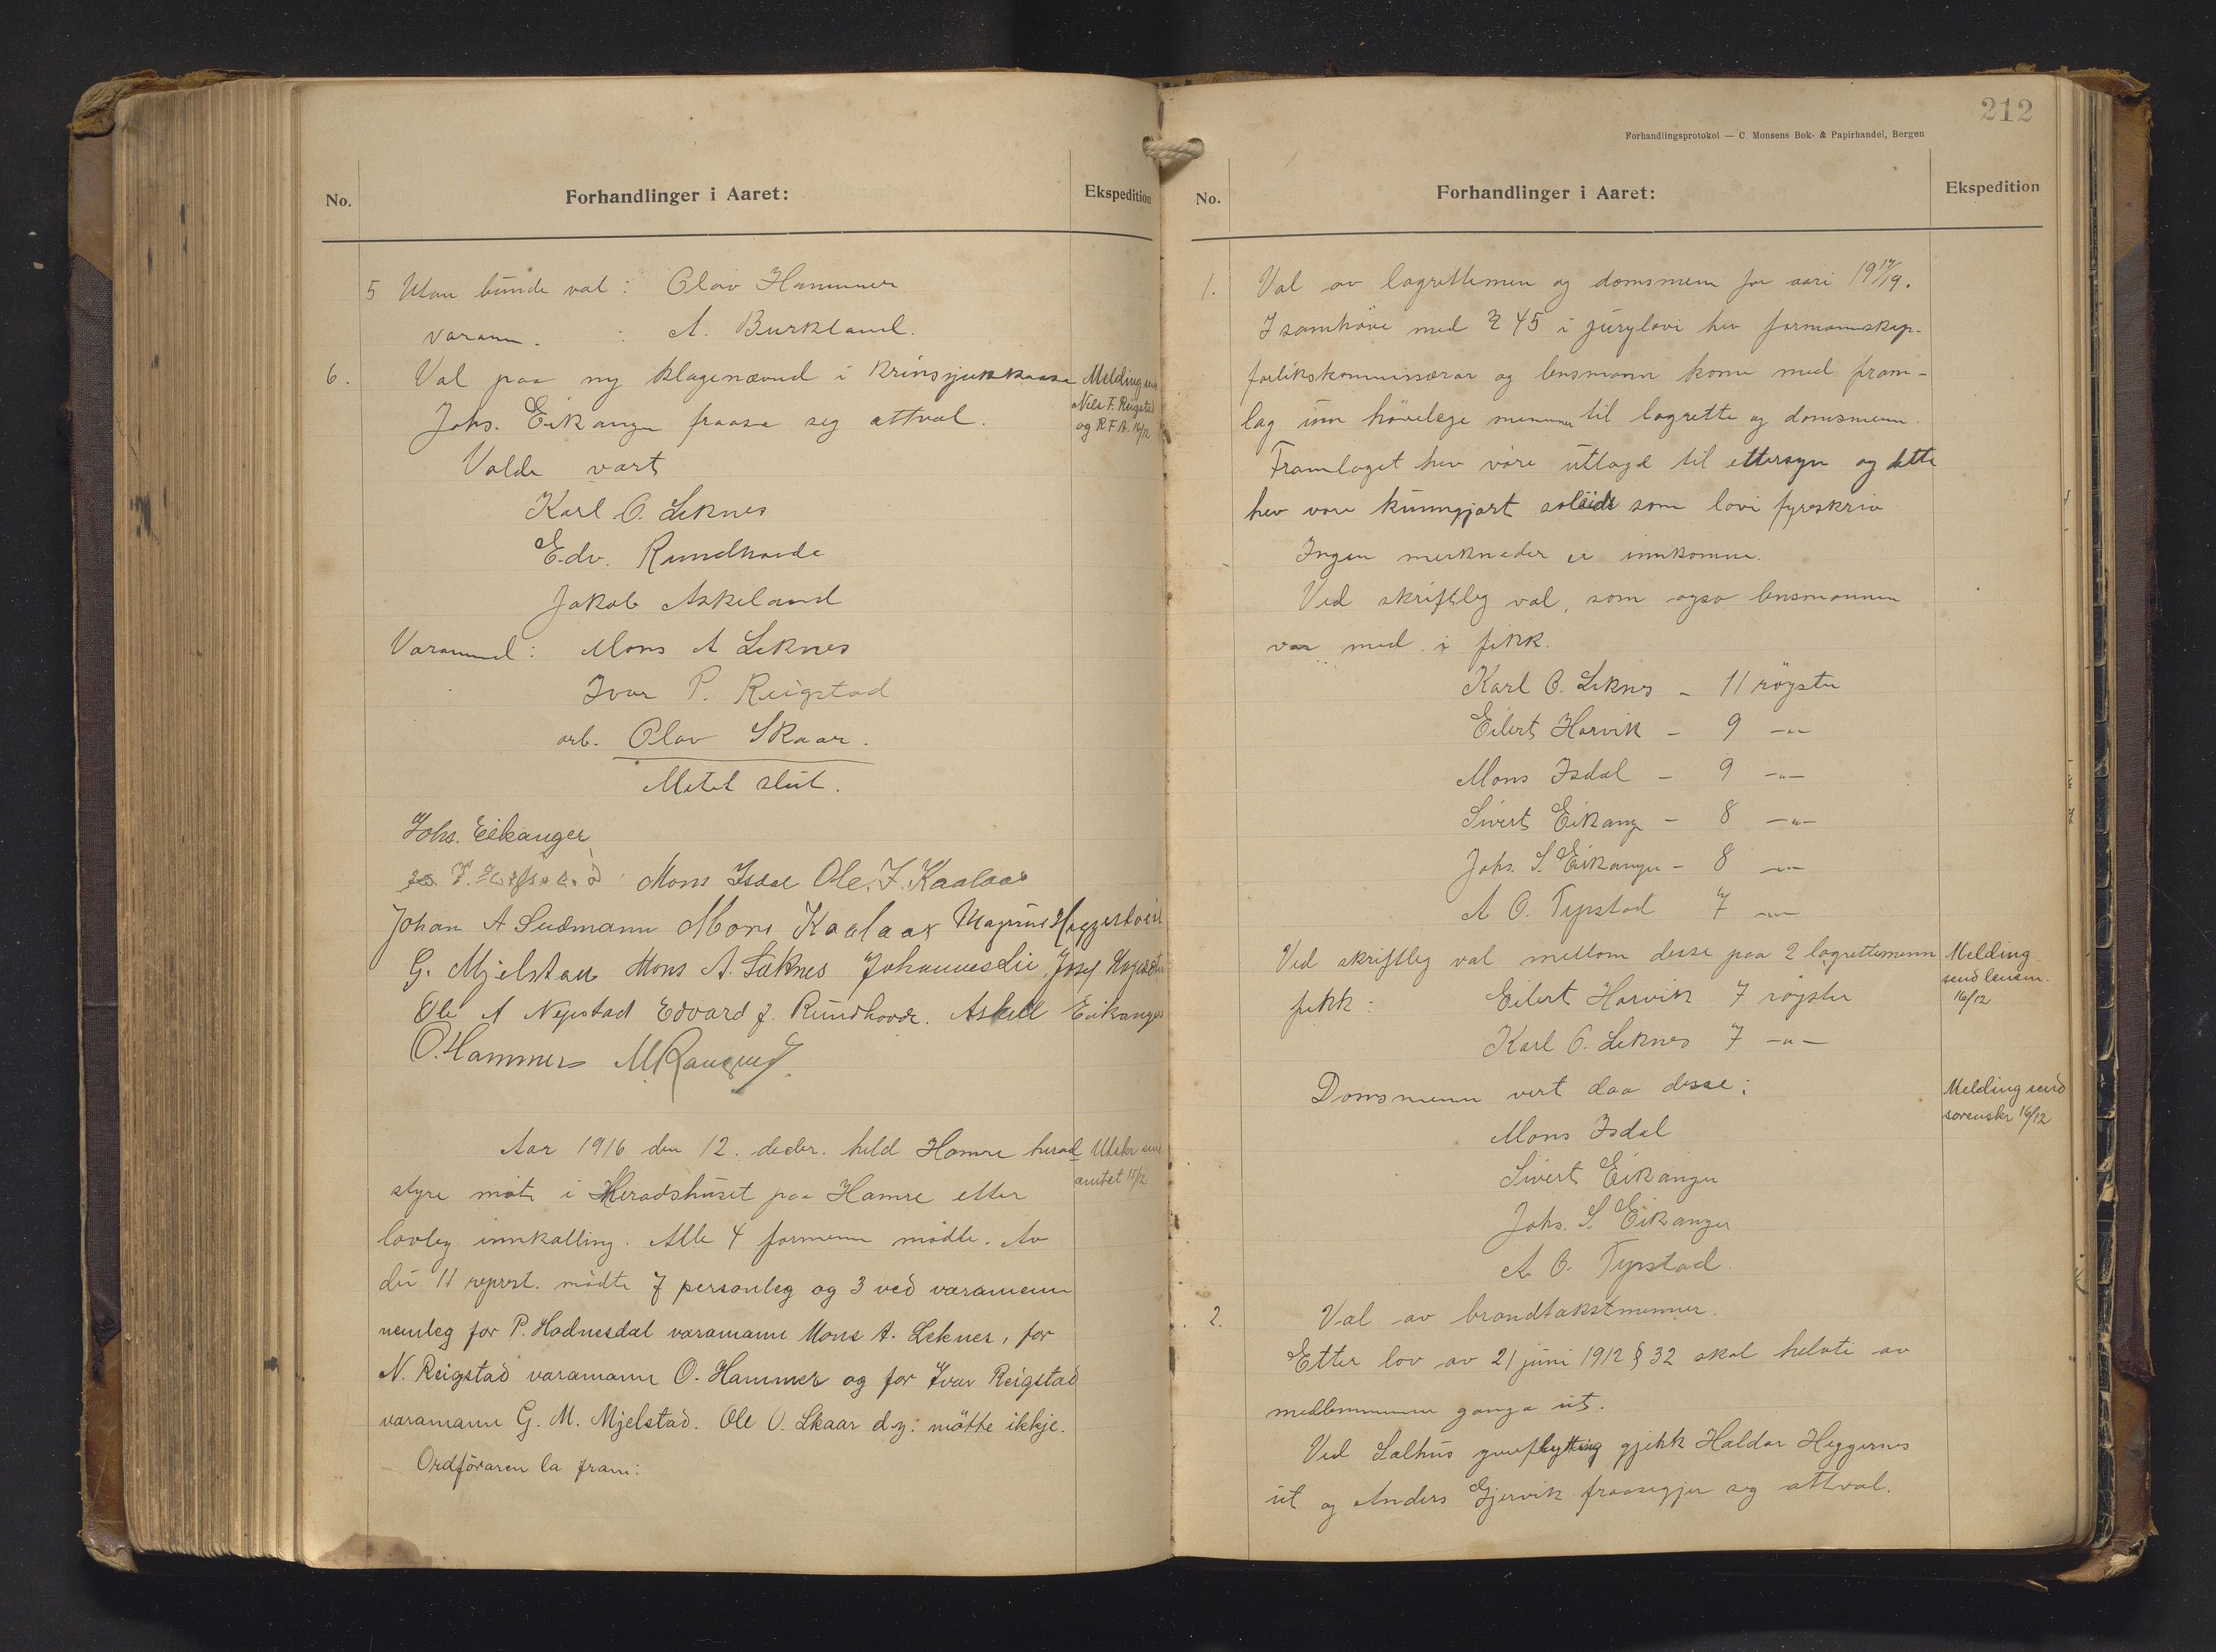 No.
Forhandlinger i Aaret:
Ekspedition
5 Utan bunde val: Olav Hammer
varam. : A. Burkland.
6. Val paa ny klagenævnd i Krinsjukkassa
Johs. Eikanger fraasa seg attval.
Melding send
Nils F. Reigstad
og R.F.A. 16/12
Valde vart
Karl O. Leknes
Edv. Rundhovde
Jakob Askeland
Varamend: Mons A Leknes
Ivar P. Reigstad
arb. Olav Skaar.
Møtet slut.
Johs. Eikanger
Mons Isdal Ole J. Kaalaas
Johan A Sudmann Mons Kaalaas Magnus
G. Mjelstad Mons A. Leknes Johannes Lie, Josef
Ole A Nepstad Edvard J. Rundhovde. Askell Eikanger
O. Hammer
Aar 1916 den 12. decbr. held Hamre herad
styre møte i Heradshuset paa Hamre etter
Utskr send
amtet 15/12
lovleg innkalling. Alle 4 formenn mødte. Av
dei 11 reprst. mødte 7 personleg og 3 ved varamenn
nemleg for P. Hodnesdal varamann Mons A. Leknes, for
N. Reigstad varamann O. Hammer og for Ivar Reigstad
varamann G. M. Mjelstad. Ole O. Skaar d.y. møtte ikkje.
Ordføraren la fram:
212
Forhandlingsprotokol — C. Monsens Bok- & Papirhandel, Bergen
No.
Forhandlinger i Aaret:
Ekspedition
1. Val av lagrettemen og domsmenn for aari 1917/19.
I samhøve med § 45 i jurylovi hev formannskap.
forlikskommissærar og lensmann kome med fram-
lag um høvelege menner til lagrette og domsmenn.
Framlaget hev vore utlagd til ettersyn og dette
hev vore kunngjort soleids som lovi fyreskriv
Ingen merknader er innkomne.
Ved skriftleg val, som ogso lensmannen
var med i fekk.
Karl O. Leknes - 11 røyster
Eilert Horvik - 9 -"-
Mons Isdal - 9 -"-
Sivert Eikang - 8 -"-
Johs. S. Eikanger - 8 -"-
A O. Tepstad 7 -"-
Ved skriftleg val mellom desse paa 2 lagrettemenn
fekk: Eilert Horvik 7 røyster
Melding
send lensm.
16/12
Karl O. Leknes 7 -"-
Domsmenn vert daa desse:
Melding send
sorenskr 16/12
Mons Isdal
Sivert Eikanger
Johs. S. Eikanger
A O. Tepstad
2. Val av brandtakstmenner.
Etter lov av 21 juni 1912 § 32 skal helvti av
medlemmene ganga ut.
Ved Salhus flytting gjekk Haldor Heggernes
ut og Anders Gjervik fraasegjer seg attval.